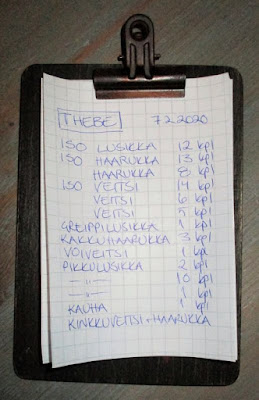 THEBE 7.2.2020
ISO LUSIKKA 12 kpl
ISO HAARUKKA 13 kpl
HAARUKKA 8 kpl
ISO VEITSI 14 kpl
VEITSI 6 kpl
VEITSI 5 kpl
GREIPPILUSIKKA 1 kpl
KAKKUHAARUKKA 3 kpl
VOIVEITSI 1 kpl
PIKKULUSIKKA 2 kpl
—"— 10 kpl
—"— 1 kpl
KAUHA 1 kpl
KINKKUVEITSI + HAARUKKA